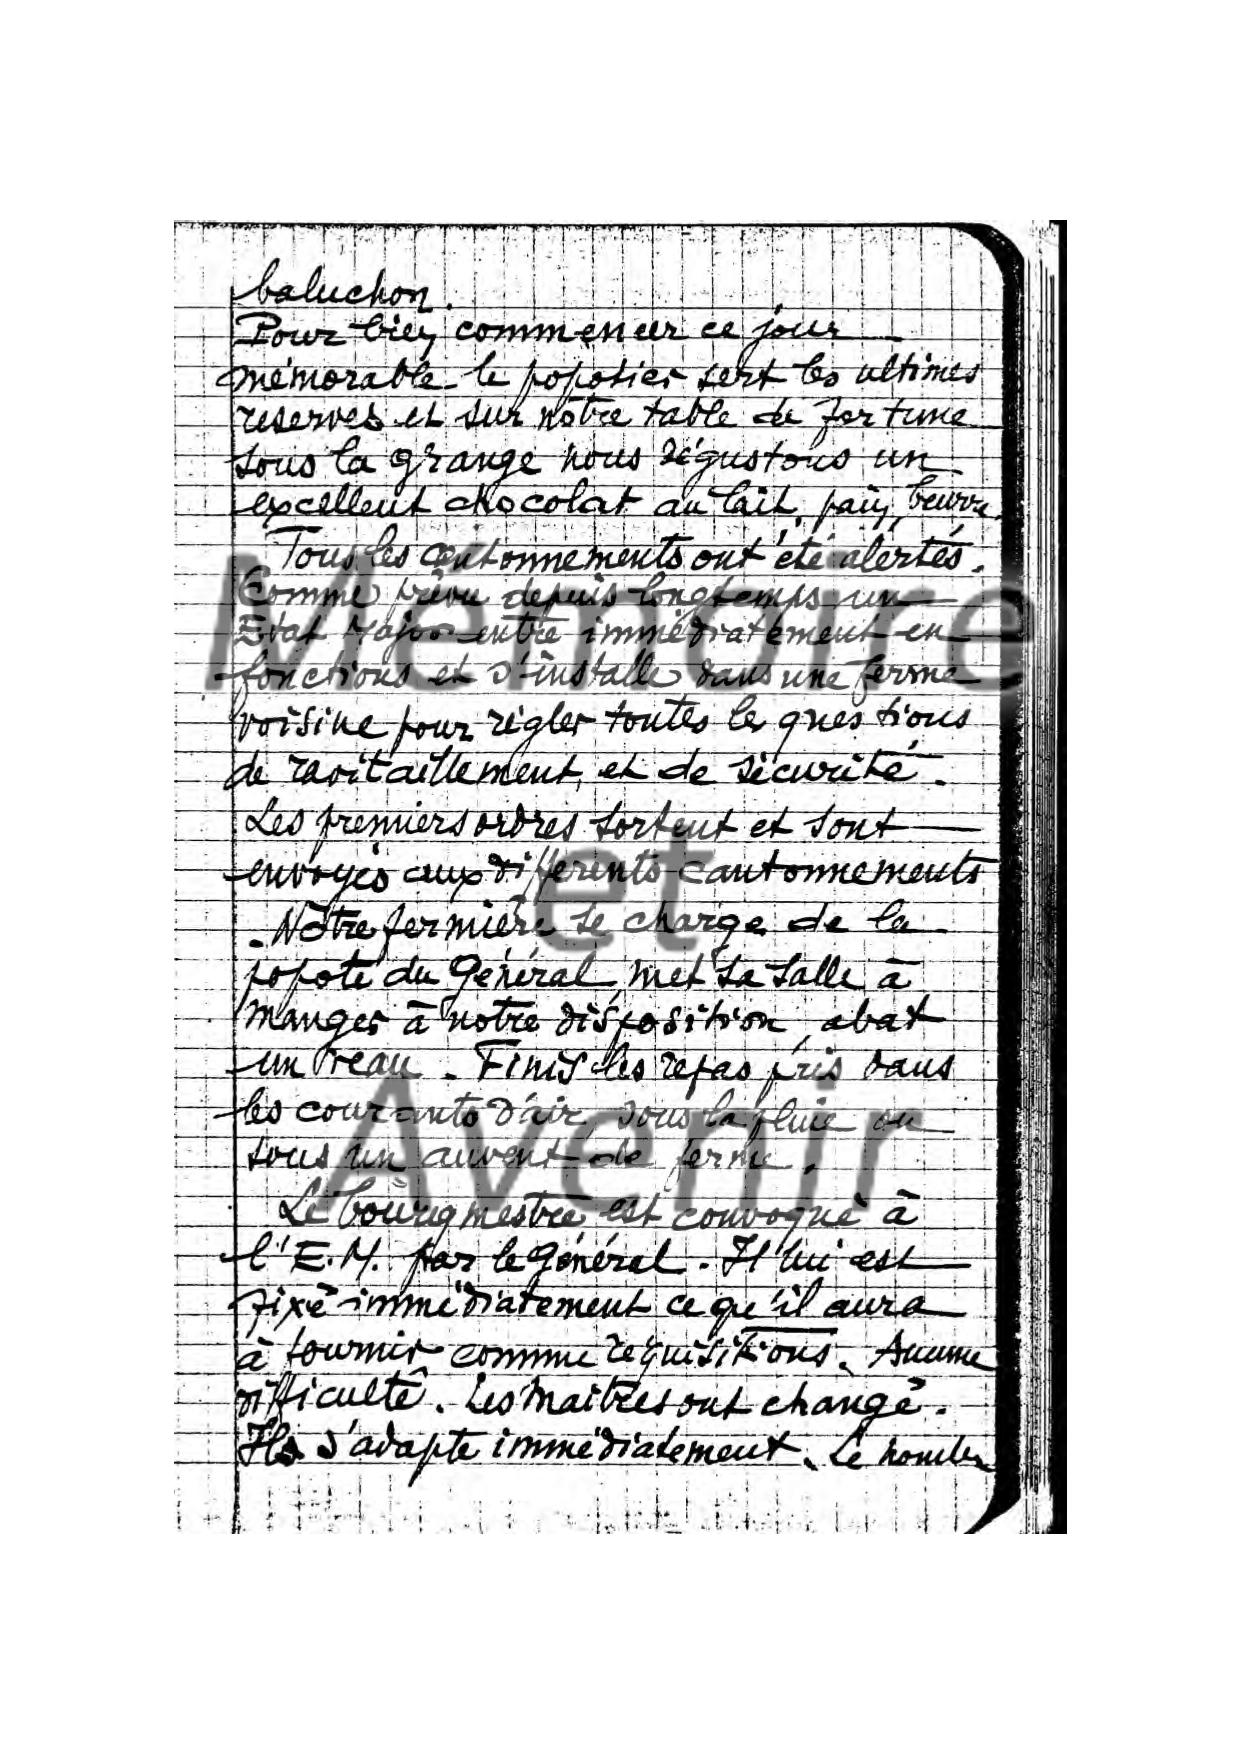 baluchon.
Pour bien commencer ce jour
mémorable le popotier sert les ultimes
reserves et sur notre table de fortune
sous la grange nous dégustons un
excellent chocolat au lait, pain, beurre.
Tous les cantonnements ont été alertés.
Comme prévu depuis longtemps un
Etat Major entre immédiatement en
fonctions et s'installe dans une ferme
voisine pour régler toutes les questions
de ravitaillement et de sécurité.
Les premiers ordres sortent et sont
envoyés aux différents cantonnements
. Notre fermière se charge de la
popote du Général, met sa salle à
manger à notre disposition, abat
un veau. Finis les repas pris dans
les courants d'air, sous la pluie ou
sous un auvent de ferme.
Le bourgmestre est convoqué à
l'E.M. par le Général. Il lui est
fixé immédiatement ce qu'il aura
à fournir comme réquisitions. Aucune
difficulté. Les Maitres ont changé.
Ils s'adapte immédiatement. Le nombre
Mémoire
et
Avenir